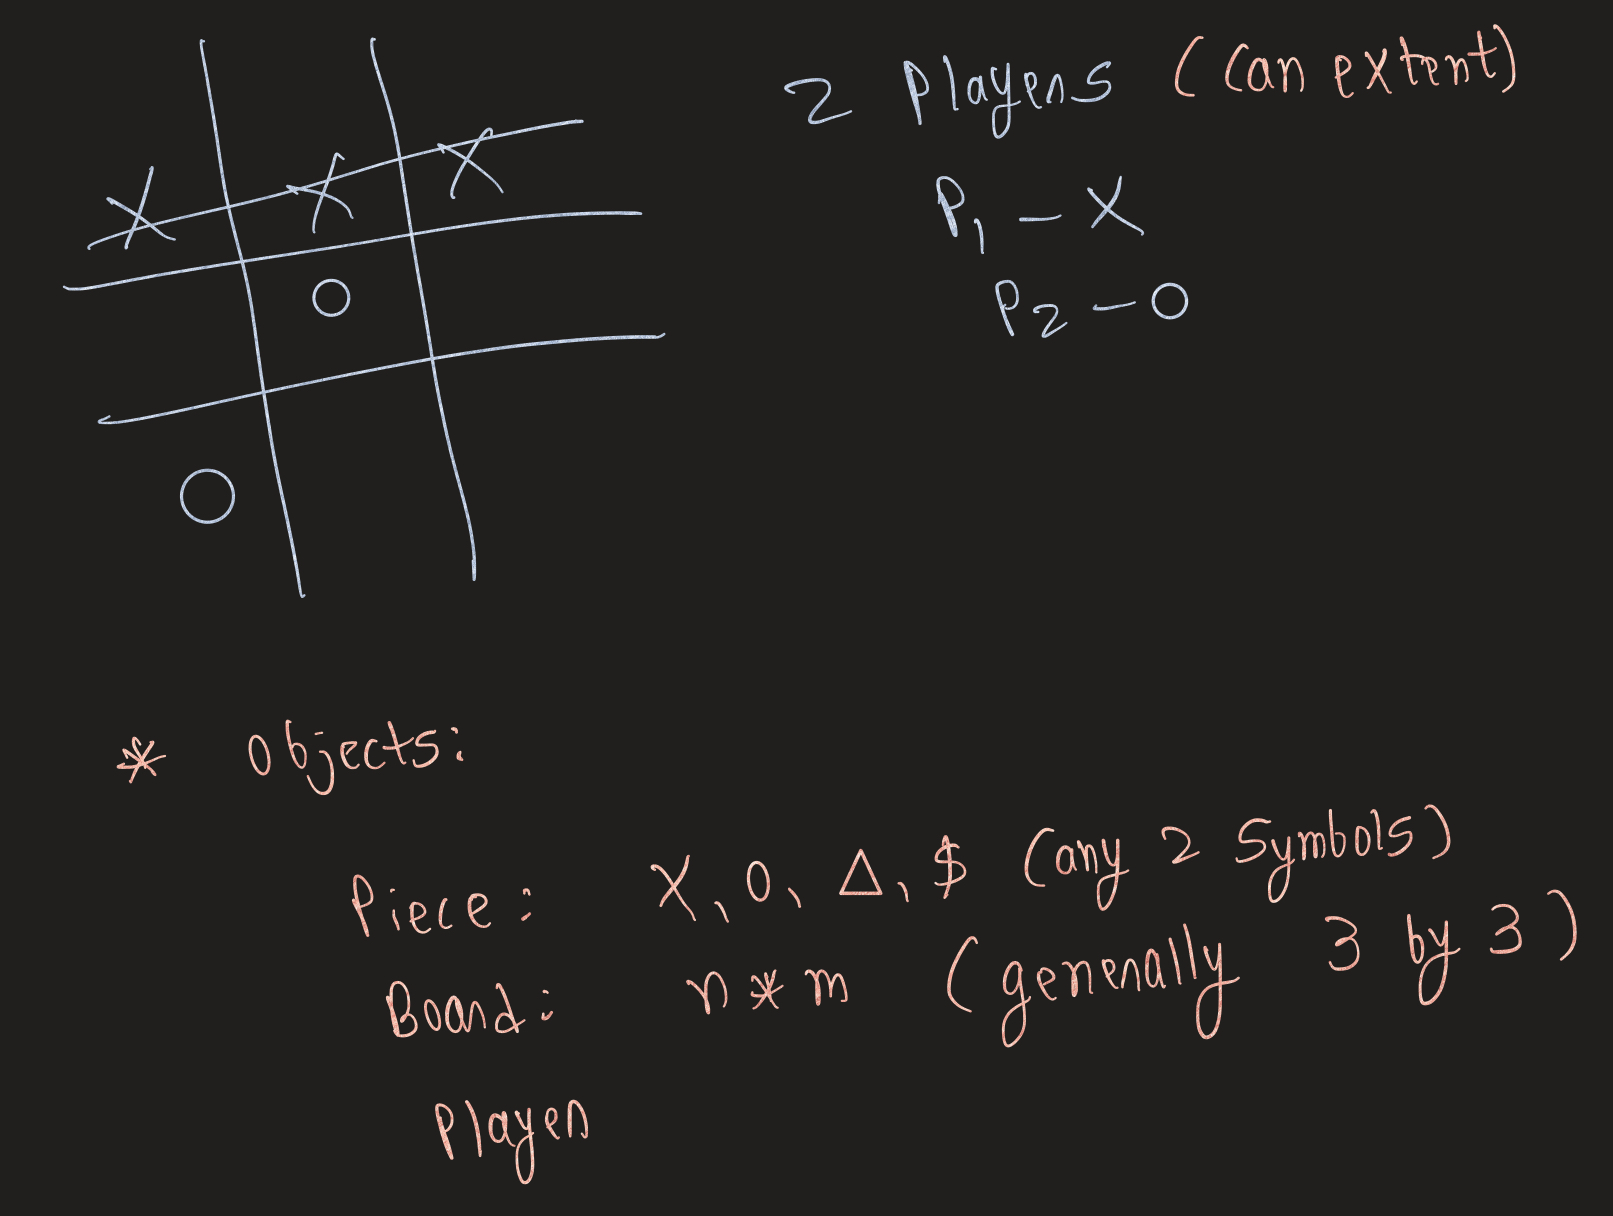 2 Players (Can extent)
X X X
P1 - X
O
P2 - O
O
* Objects:
Piece: X, O, Δ, $ (any 2 Symbols)
Board: n*m (generally 3 by 3)
Player